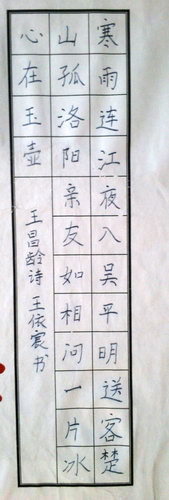 寒雨连江夜入吴平明送客楚
山孤洛阳亲友如相问一片冰
心在玉壶
王昌龄诗 王依宸书